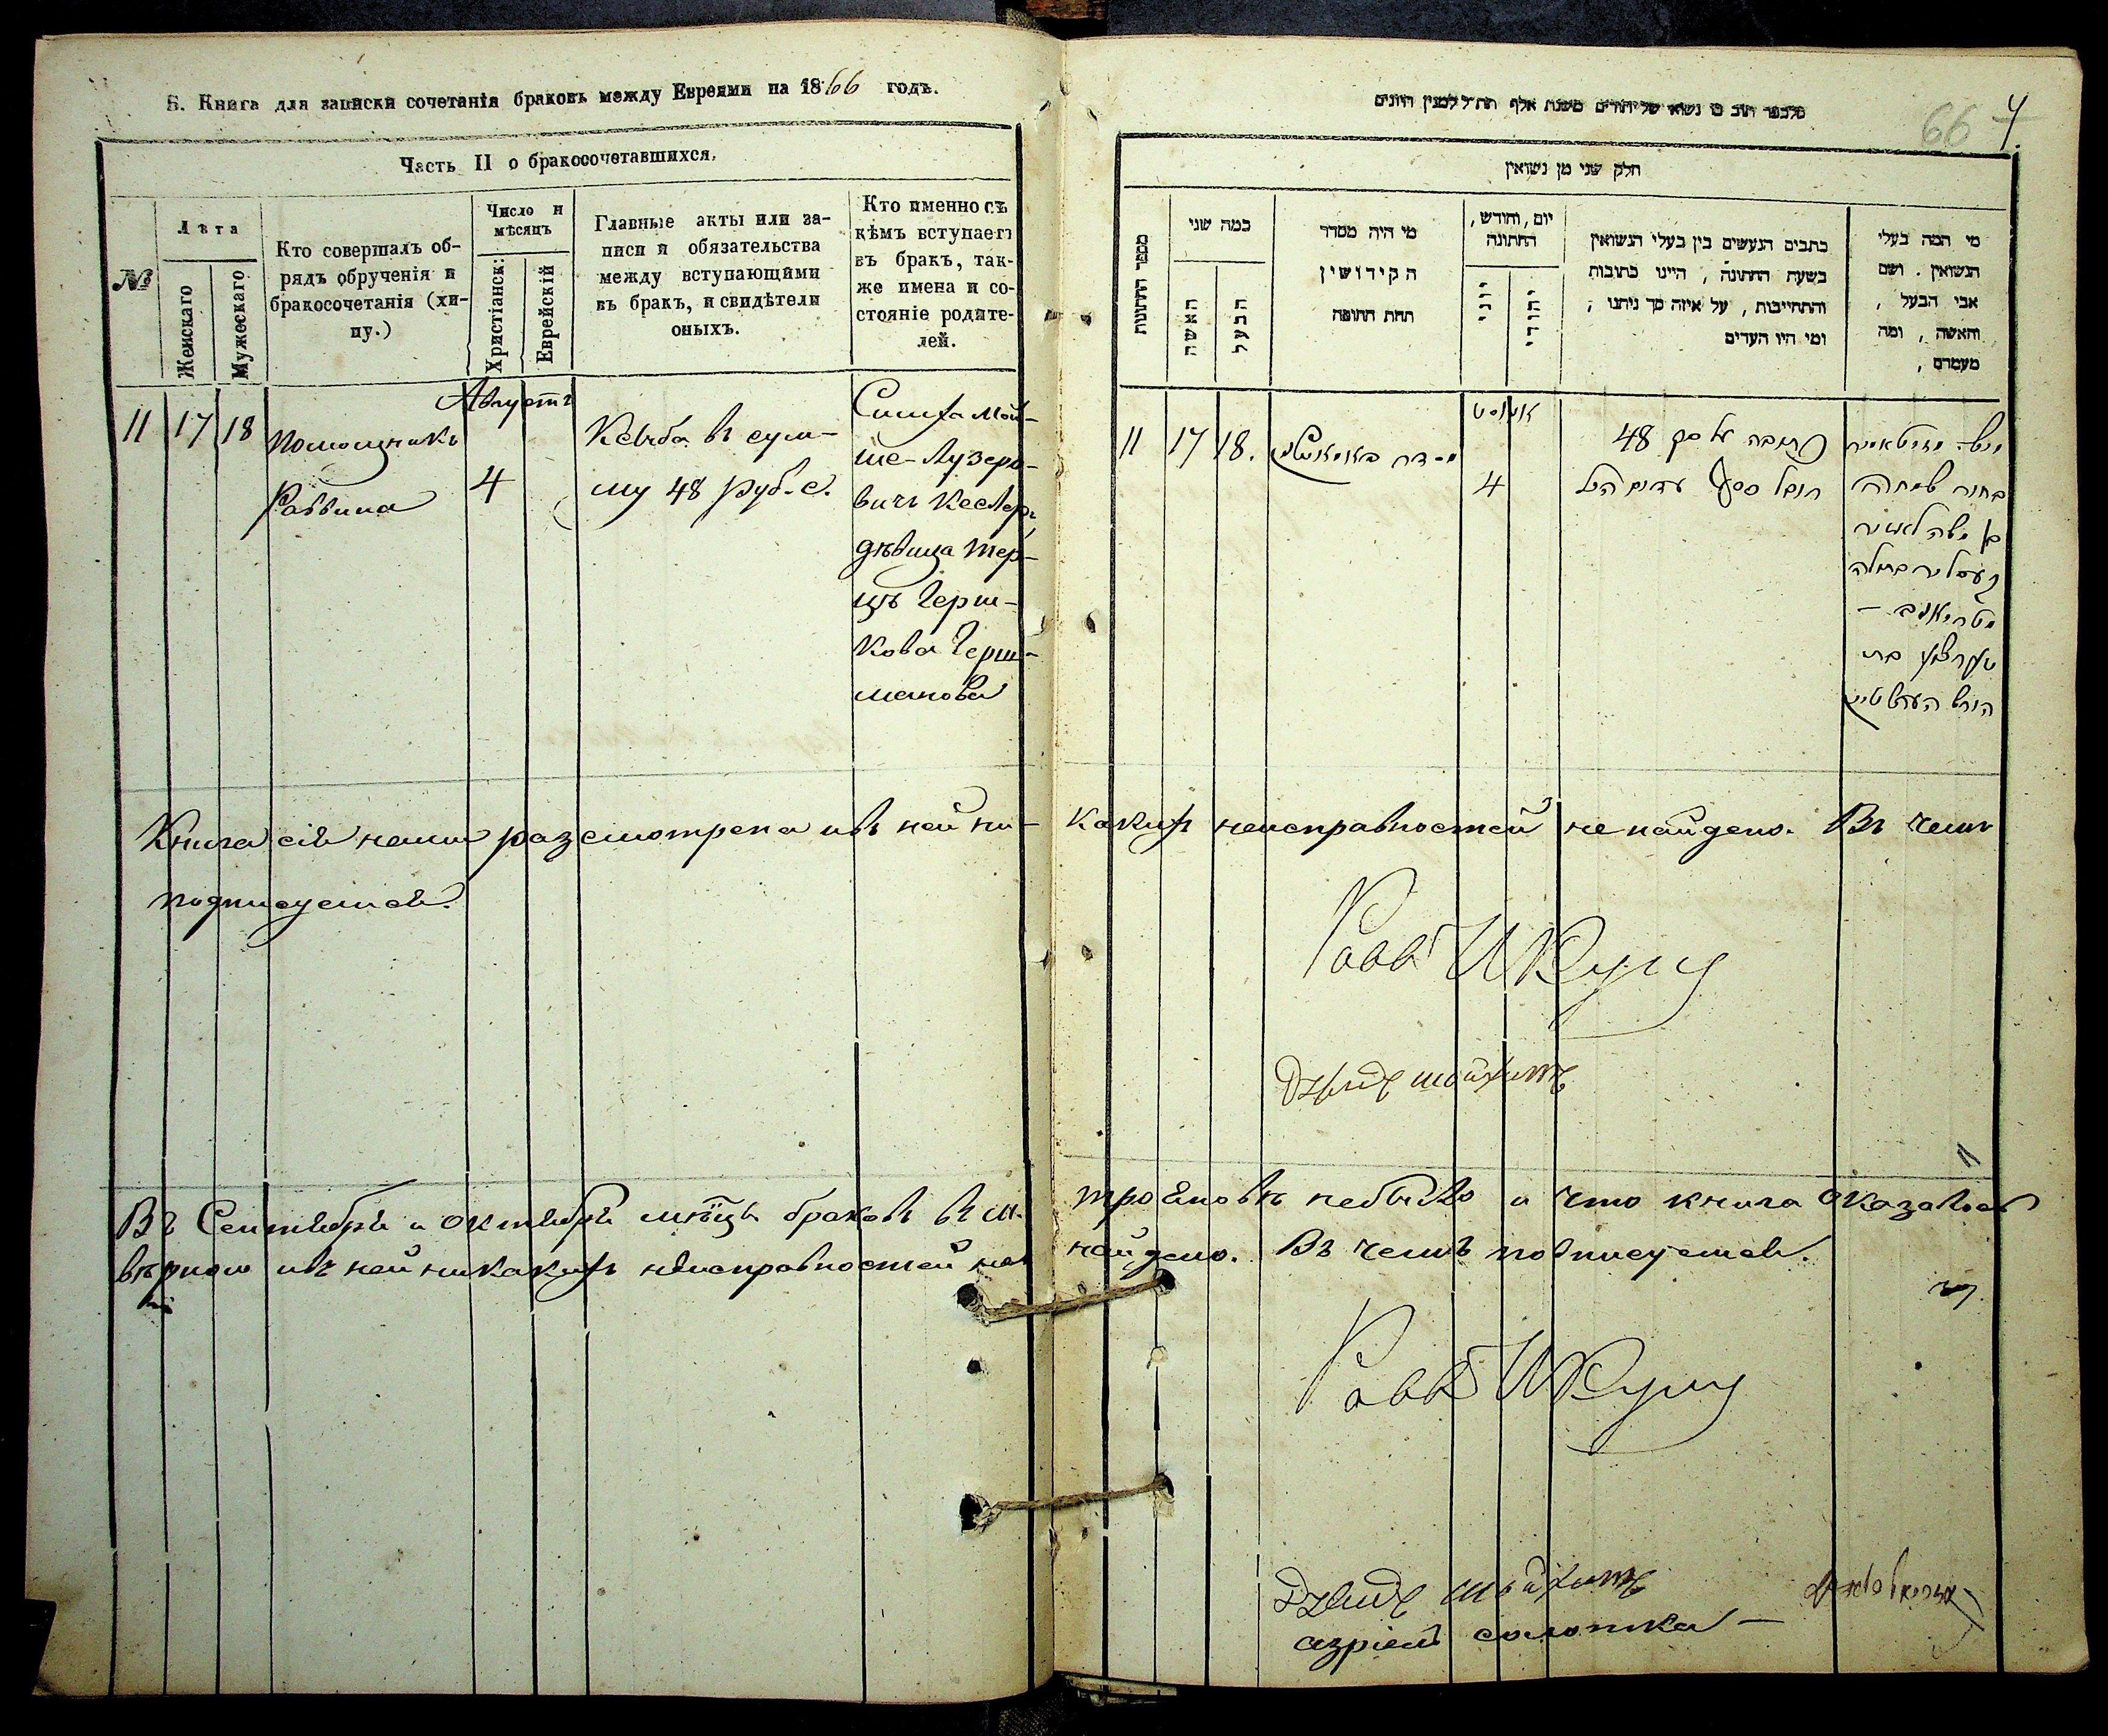 Б. Книга для записки сочетанія браковъ между Евреями на 1866 годъ.
Часть II о бракосочетавшихся.
№
Лѣта
Женскаго
Мужескаго
Кто совершалъ об-
рядъ обрученія и
бракосочетанія (хи-
пу.)
Число и
мѣсяцъ
Христіанск:
Еврейскій
Главные акты или за-
писи и обязательства
между вступающими
въ бракъ, и свидѣтели
оныхъ.
Кто именно съ
кѣмъ вступаетъ
въ бракъ, так-
же имена и со-
стояніе родите-
лей.
11
17
18
Помощникъ
Раввина
Августъ
4
въ сум-
му 48 руб. с.
Симха Мой-
ше-Лузеро-
вичъ Кеслеръ,
дѣвица Тер-
цъ Герш-
кова Герш-
манова
66 4.
חלק שני מן נשואין
מספר החתונות
כמה שני
האשה
הבעל
מי היה מסדר
הקידושין
תחת החופה
יום, וחודש,
החתונה
יוני
יהודי
כתבים הנעשים בין בעלי הנשואין
בשעת החתונה, היינו כתובות
והתחייבות, על איזה סך ניתנו,
ומי היו העדים
מי המה בעלי
הנשואין. ושם
אבי הבעל,
והאשה, ומה
מעמדם,
11
17
18.
אוגוסט
4
כתובה על סך 48
רובל כסף
בחור שמחה
בן משה לאזיר
קעסליר
בת
הערש
Книга сія нами разсмотрена и въ ней ни-
какихъ неисправностей не найдено. Въ чемъ
подписуемся.
Равв И Кунц
Въ Сентябрѣ и Октябрѣ мѣсяцѣ браковъ въ м.
не было и что книга оказалась
вѣрною и въ ней никакихъ неисправностей не
найдено. Въ чемъ подписуемся.
Равв И Кунц
азріель соломка